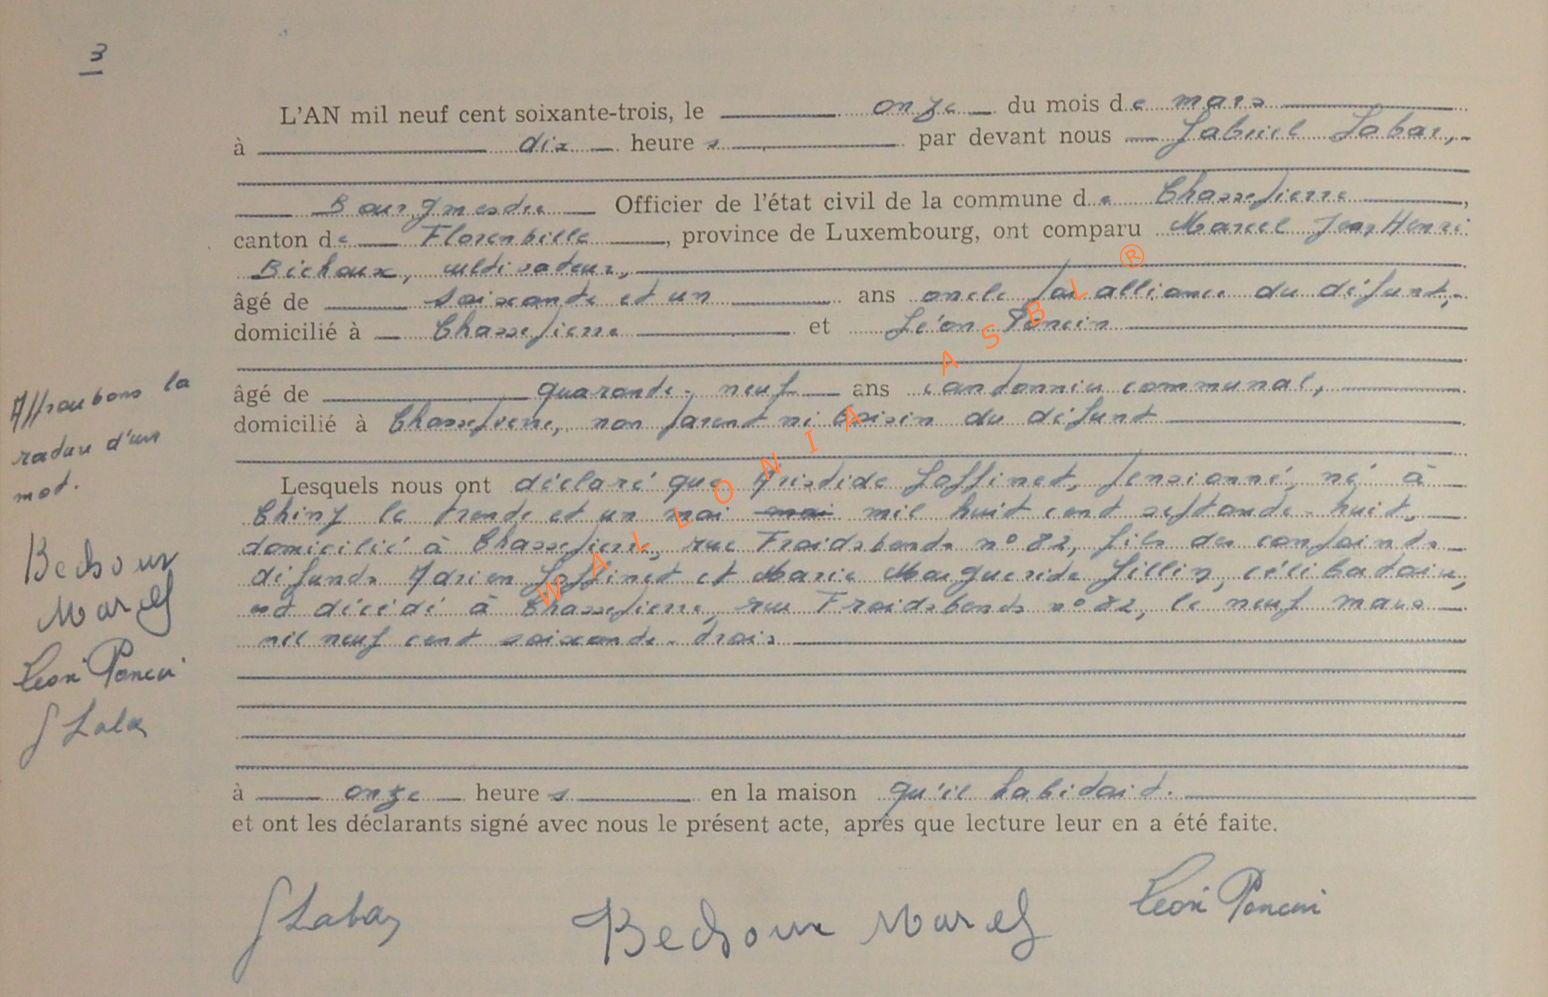 3
L'AN mil neuf cent soixante-trois, le onze du mois de mars
à dix heures par devant nous Gabriel Labar,
Bourgmestre Officier de l'état civil de la commune de Chassepierre,
canton de Florenville, province de Luxembourg, ont comparu Marcel Jean Henri
Bichoux, cultivateur,
âgé de soixante et un ans oncle par alliance du défunt,
domicilié à Chassepierre et Léon Poncin
âgé de quarante-neuf ans cantonnier communal,
domicilié à Chassepierre, non parent ni voisin du défunt
Lesquels nous ont déclaré que Aristide Goffinet, pensionné, né à
Chiny le trente et un mai mai mil huit cent septante-huit,
domicilié à Chassepierre, rue Froidebonde n° 82, fils des conjoints
défunts Adrien Goffinet et Marie Marguerite Gillin, célibataire,
est décédé à Chassepierre, rue n° 82, le neuf mars
mil neuf cent soixante-trois
à onze heures en la maison qu'il habitait.
et ont les déclarants signé avec nous le présent acte, après que lecture leur en a été faite.
Approuvons la
rature d'un
mot.
Bechoux
Marcel
Léon Poncin
G Labar
G Labar
Bechoux Marcel
Léon Poncin
WALLONIA ASBL ®